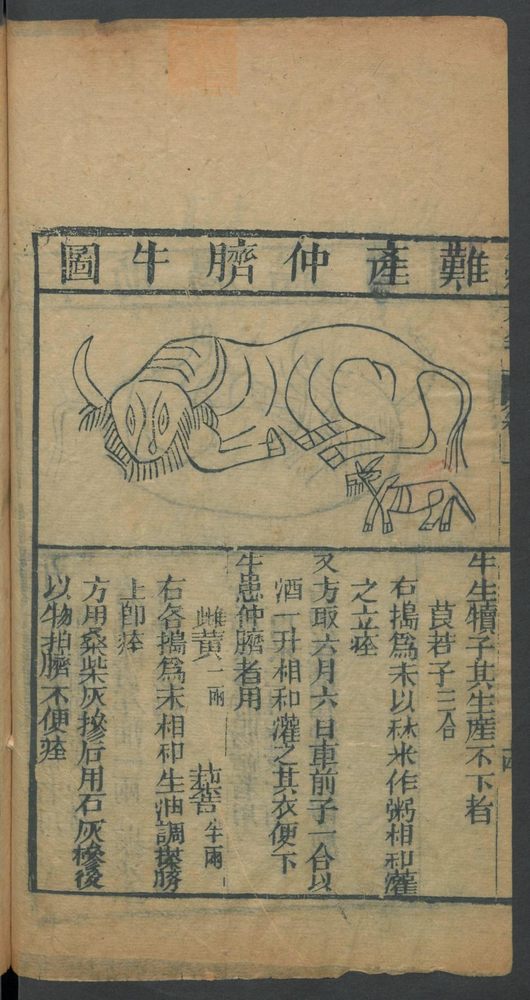 難產仲臍牛圖
牛生犢子其生產不下者
莨菪子三合
右搗爲末以秫米作粥相和灌
之立痊
又方取六月六日車前子一合以
酒一升相和灌之其衣便下
牛患仲臍者用
雌黃一兩
半兩
右各搗爲末相和生油調搽臍
上卽痊
方用桑柴灰摻后用石灰摻後
以物拍臍不便痊